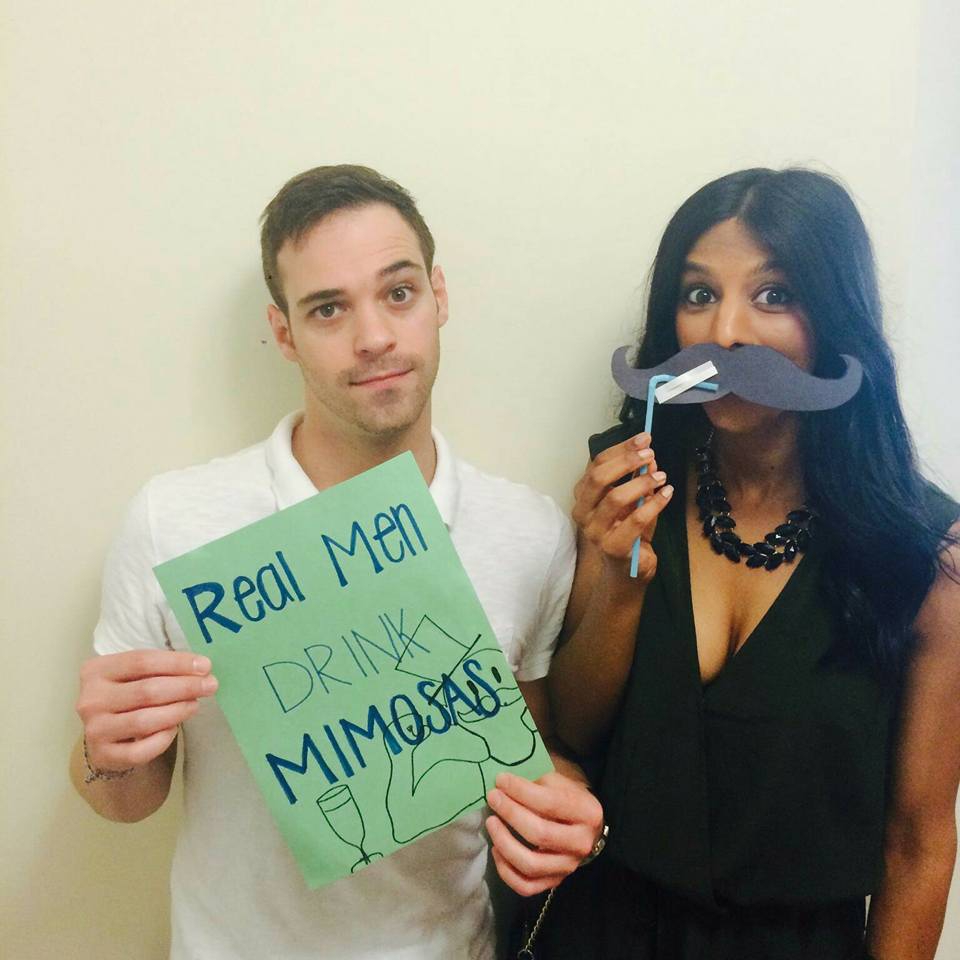 Real Men
DRINK
MIMOSAS